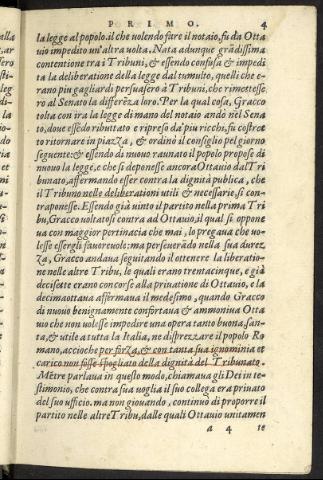 PRIMO. 4
la legge al popolo. il che volendo fare il notaio, fu da Otta
vio impedito un'altra volta. Nata adunque grādissima
contentione tra i Tribuni, & essendo confusa & impedi
ta la deliberatione della legge dal tumulto, quelli che e-
rano piu gagliardi persuasero à Tribuni, che rimettesse
rò al Senato la differēza loro. Per la qual cosa, Gracco
tolta con ira la legge di mano del notaio andò nel Sena
to, doue essēdo ributtato e ripreso da' piu ricchi, fu cōstret
to ritornare in piazza, & ordinò il consiglio pel giorno
seguente: & essendo di nuouo raunato il popolo propose di
nuouo la legge, e che si deponesse ancora Ottauio dal Tri
bunato, affermando esser contra la dignità publica, che
il Tribuno nelle deliberationi utili & necessarie, si con-
traponesse. Essendo già uinto il partito nella prima Tri
bu, Gracco uoltatosi contra ad Ottauio, il qual si oppone
ua con maggior pertinacia che mai, lo pregaua che vo-
lesse essergli fauoreuole: ma perseuerādo nella sua durez
za, Gracco andaua seguitando il ottenere la liberatio-
ne nelle altre Tribu, le quali erano trentacinque, e già
decisette erano concorse alla priuatione di Ottauio, e la
decimaottaua affermaua il medesimo, quando Gracco
di nuouo benignamente confortaua & ammoniua Otta
uio che non uolesse impedire una opera tanto buona, san-
ta, & utile a tutta la Italia, ne disprezzare il popolo Ro
mano, accioche per forza, & con tanta sua ignominia et
carico non fusse spogliato della dignità del Tribunato.
Mētre parlaua in questo modo, chiamaua gli Dei in te-
stimonio, che contra sua uoglia il suo collega era priuato
del suo ufficio. ma non giouando, continuò di proporre il
partito nelle altre Tribu, dalle quali Ottauio unitamen
a 4 te